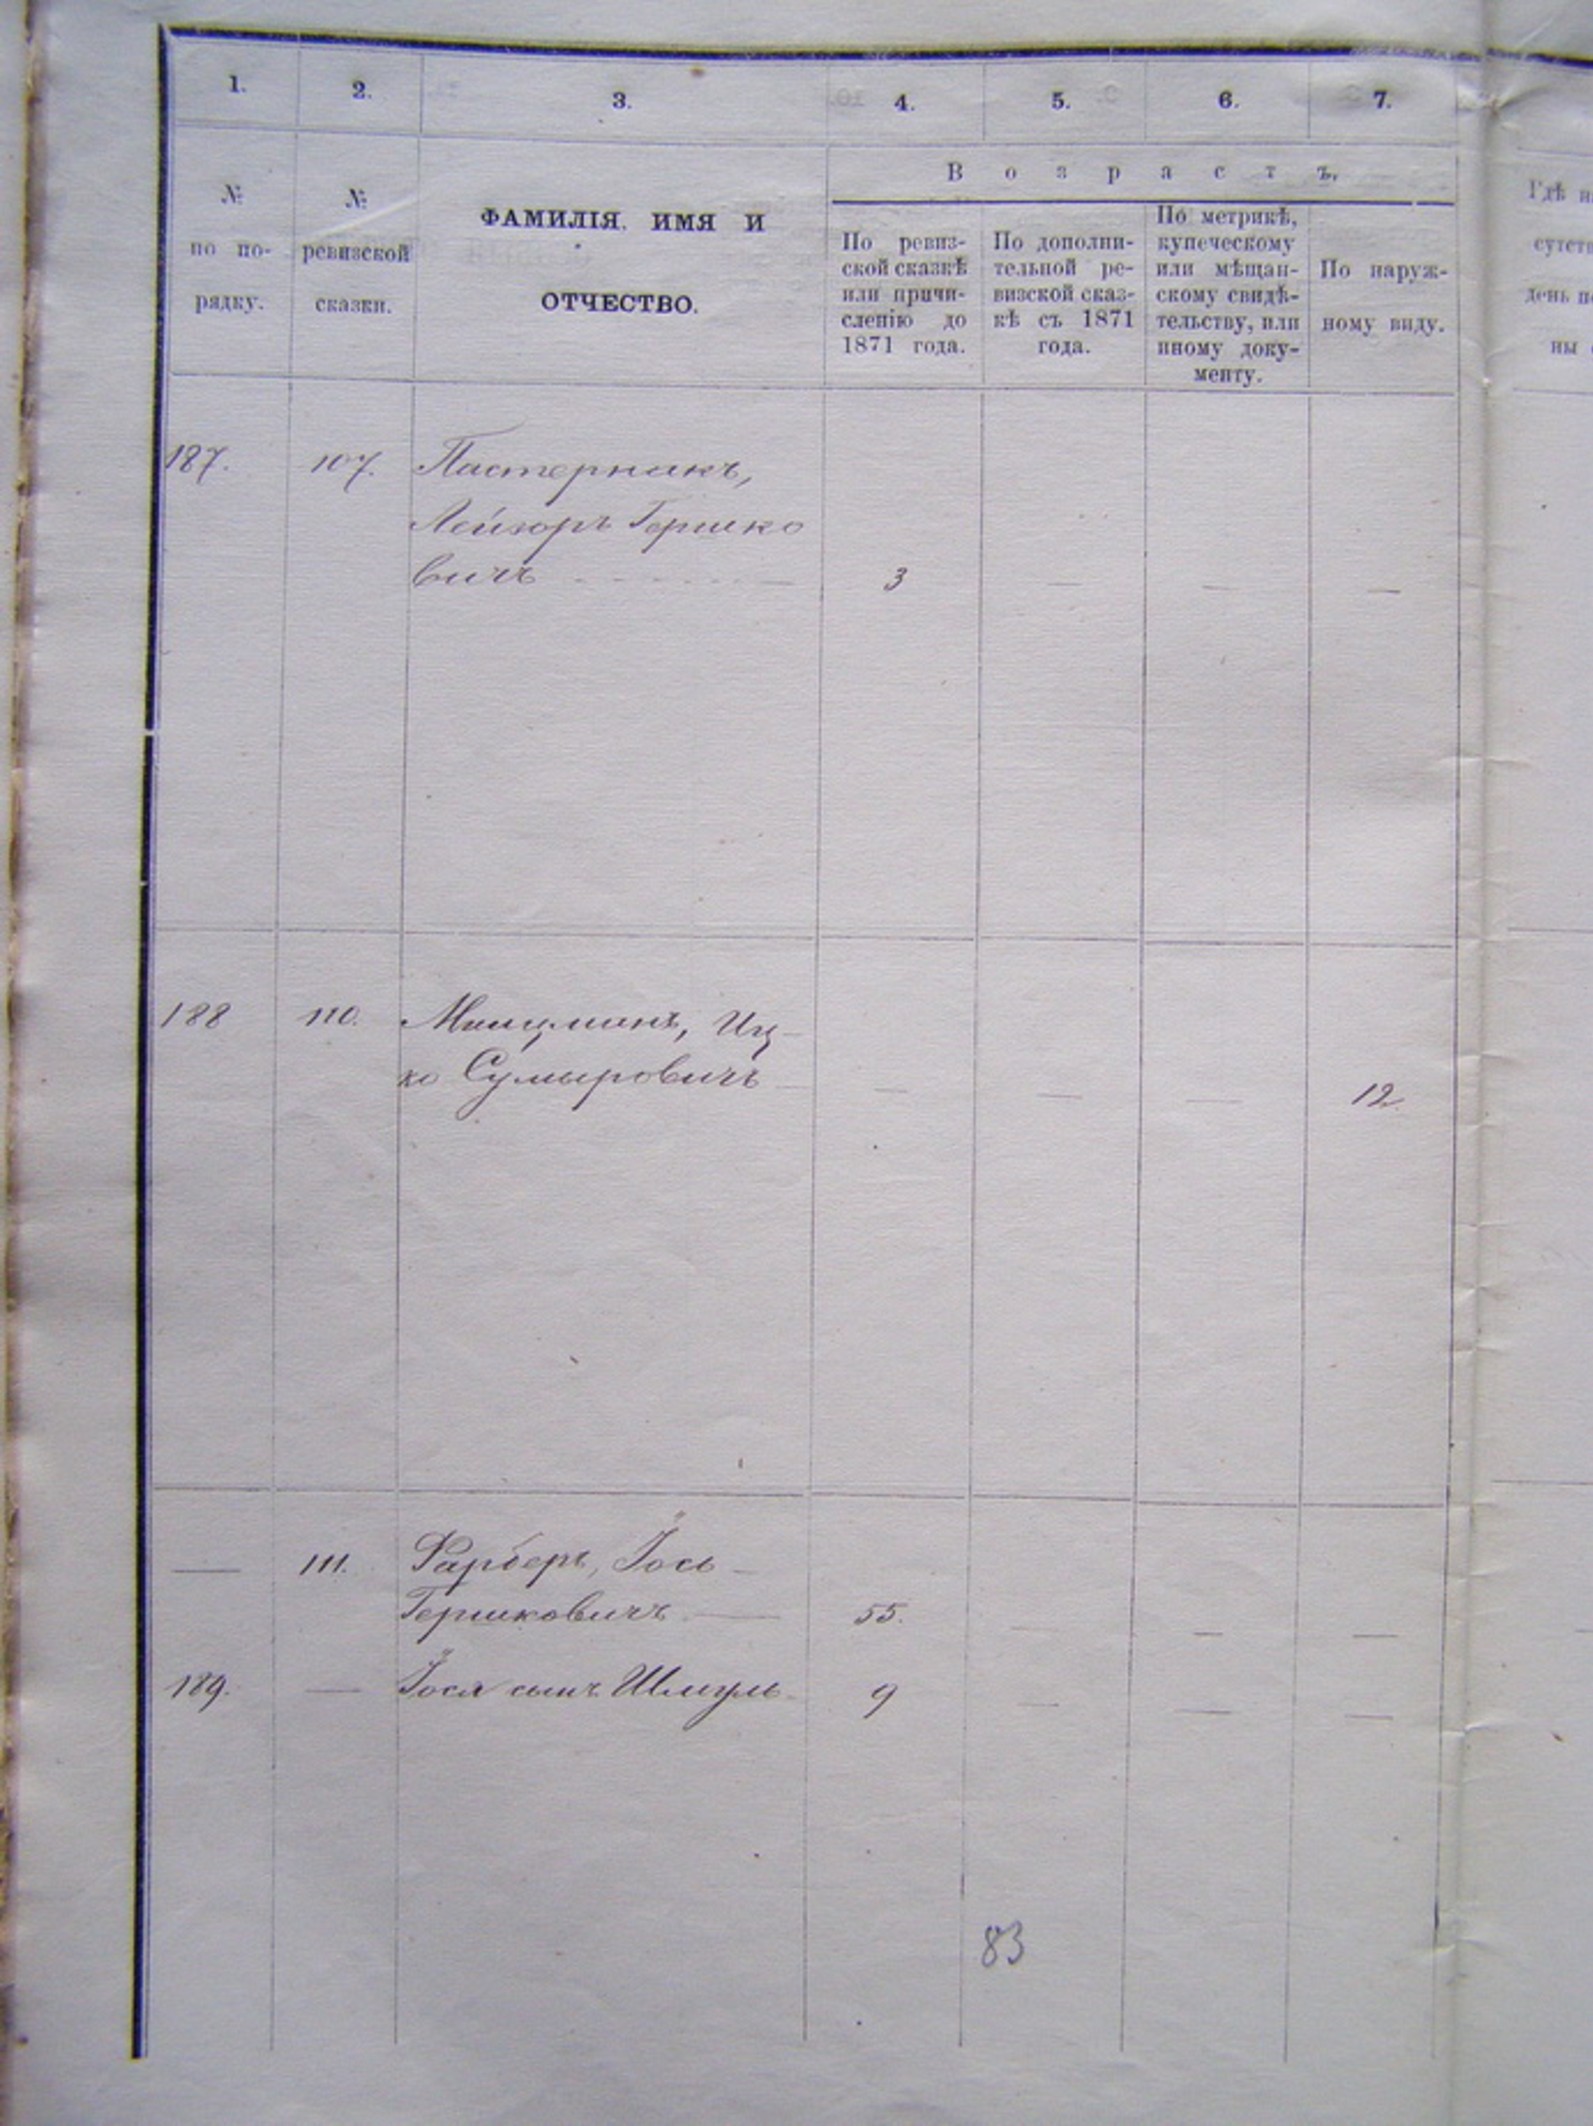 1. 2. 3. 4. 5. 6. 7.
№ по по-рядку.
№ ревизской сказки.
ФАМИЛІЯ. ИМЯ И
ОТЧЕСТВО.
Возрастъ.
По ревиз-
ской сказкѣ
или причи-
сленію до
1871 года.
По дополни-
тельной ре-
визской сказ-
кѣ съ 1871
года.
По метрикѣ,
купеческому
или мѣщан-
скому свидѣ-
тельству, или
иному доку-
менту.
По наруж-
ному виду.
Гдѣ
день
ны
187. 107. Пастернакъ,
Лейзоръ Гершко
вичъ 3 — — —
188 110. Иц-
ко — — — 12
— 111. Фарберъ, Іось
Гершковичъ 55. — — —
189. — Іося сынъ Шмуль 9 — — —
83